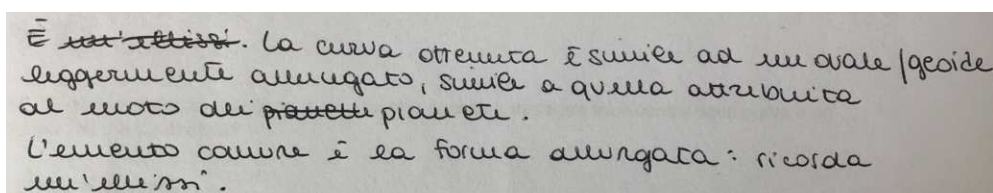 È un'ellissi. La curva ottenuta è simile ad un ovale/geoide
leggermente allungato, simile a quella attribuita
al moto dei pianeti pianeti.
L'elemento comune è la forma allungata: ricorda
un'ellissi.